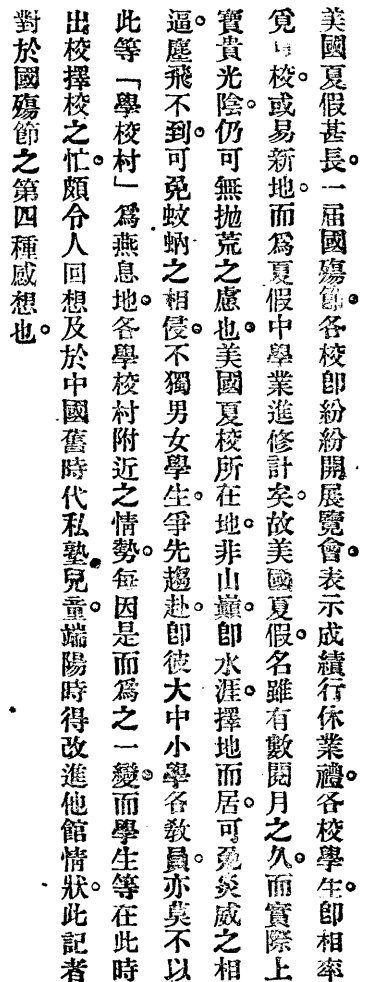 美國夏假甚長。一屆國殤節。各校卽紛紛開展覽會。表示成績行休業禮。各校學生。卽相率
覓校。或易新地。而爲夏假中學業進修計矣。故美國夏假。名雖有數閱月之久。而實際上
寶貴光陰。仍可無拋荒之慮也。美國夏校所在地。非山巓卽水涯。擇地而居。可免炎威之相
逼。塵飛不到。可免蚊蚋之相侵。不獨男女學生。爭先趨赴。卽彼大中小學各敎員。亦莫不以
此等「學校村」爲燕息地。各學校村附近之情勢。每因是而爲之一變。而學生等在此時
出校擇校之忙。頗令人回想及於中國舊時代私塾兒童。端陽時得改進他館情狀。此記者
對於國殤節之第四種感想也。